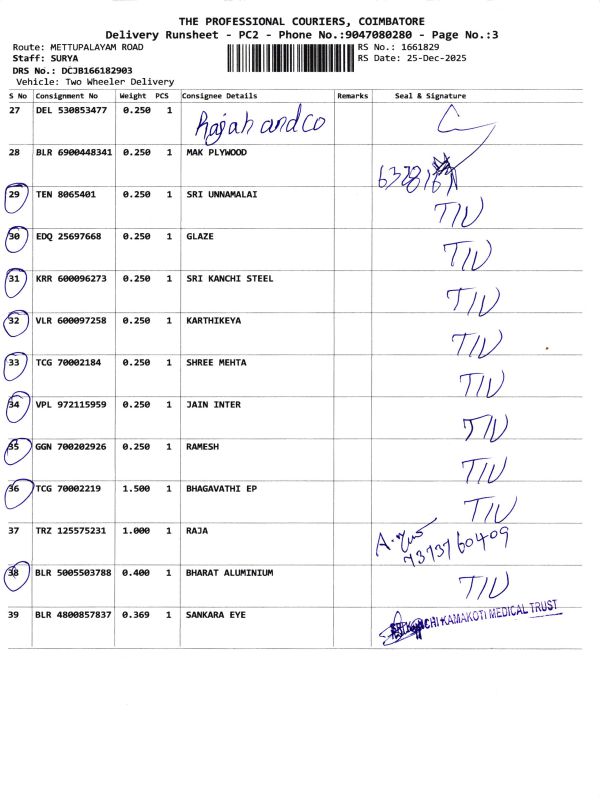 THE PROFESSIONAL COURIERS, COIMBATORE
Delivery Runsheet - PC2 - Phone No.:9047080280 - Page No.:3
Route: METTUPALAYAM ROAD RS No.: 1661829
Staff: SURYA RS Date: 25-Dec-2025
DRS No.: DCJB166182903
Vehicle: Two Wheeler Delivery
S No Consignment No Weight PCS Consignee Details Remarks Seal & Signature
27 DEL 530853477 0.250 1 Rajah and co
28 BLR 6900448341 0.250 1 MAK PLYWOOD
29 TEN 8065401 0.250 1 SRI UNNAMALAI T/N
30 EDQ 25697668 0.250 1 GLAZE T/N
31 KRR 600096273 0.250 1 SRI KANCHI STEEL T/N
32 VLR 600097258 0.250 1 KARTHIKEYA T/N
33 TCG 70002184 0.250 1 SHREE MEHTA T/N
34 VPL 972115959 0.250 1 JAIN INTER T/N
35 GGN 700202926 0.250 1 RAMESH T/N
36 TCG 70002219 1.500 1 BHAGAVATHI EP T/N
37 TRZ 125575231 1.000 1 RAJA
7373760409
38 BLR 5005503788 0.400 1 BHARAT ALUMINIUM T/N
39 BLR 4800857837 0.369 1 SANKARA EYE KAMAKOTI MEDICAL TRUST